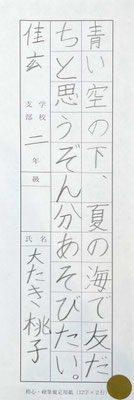 青い空の下、夏の海で友だ
ちと思うぞん分あそびたい。
学校
支部
二年級
氏名
佳玄
大たき桃子
硬心・硬筆検定用紙（12字×2行）